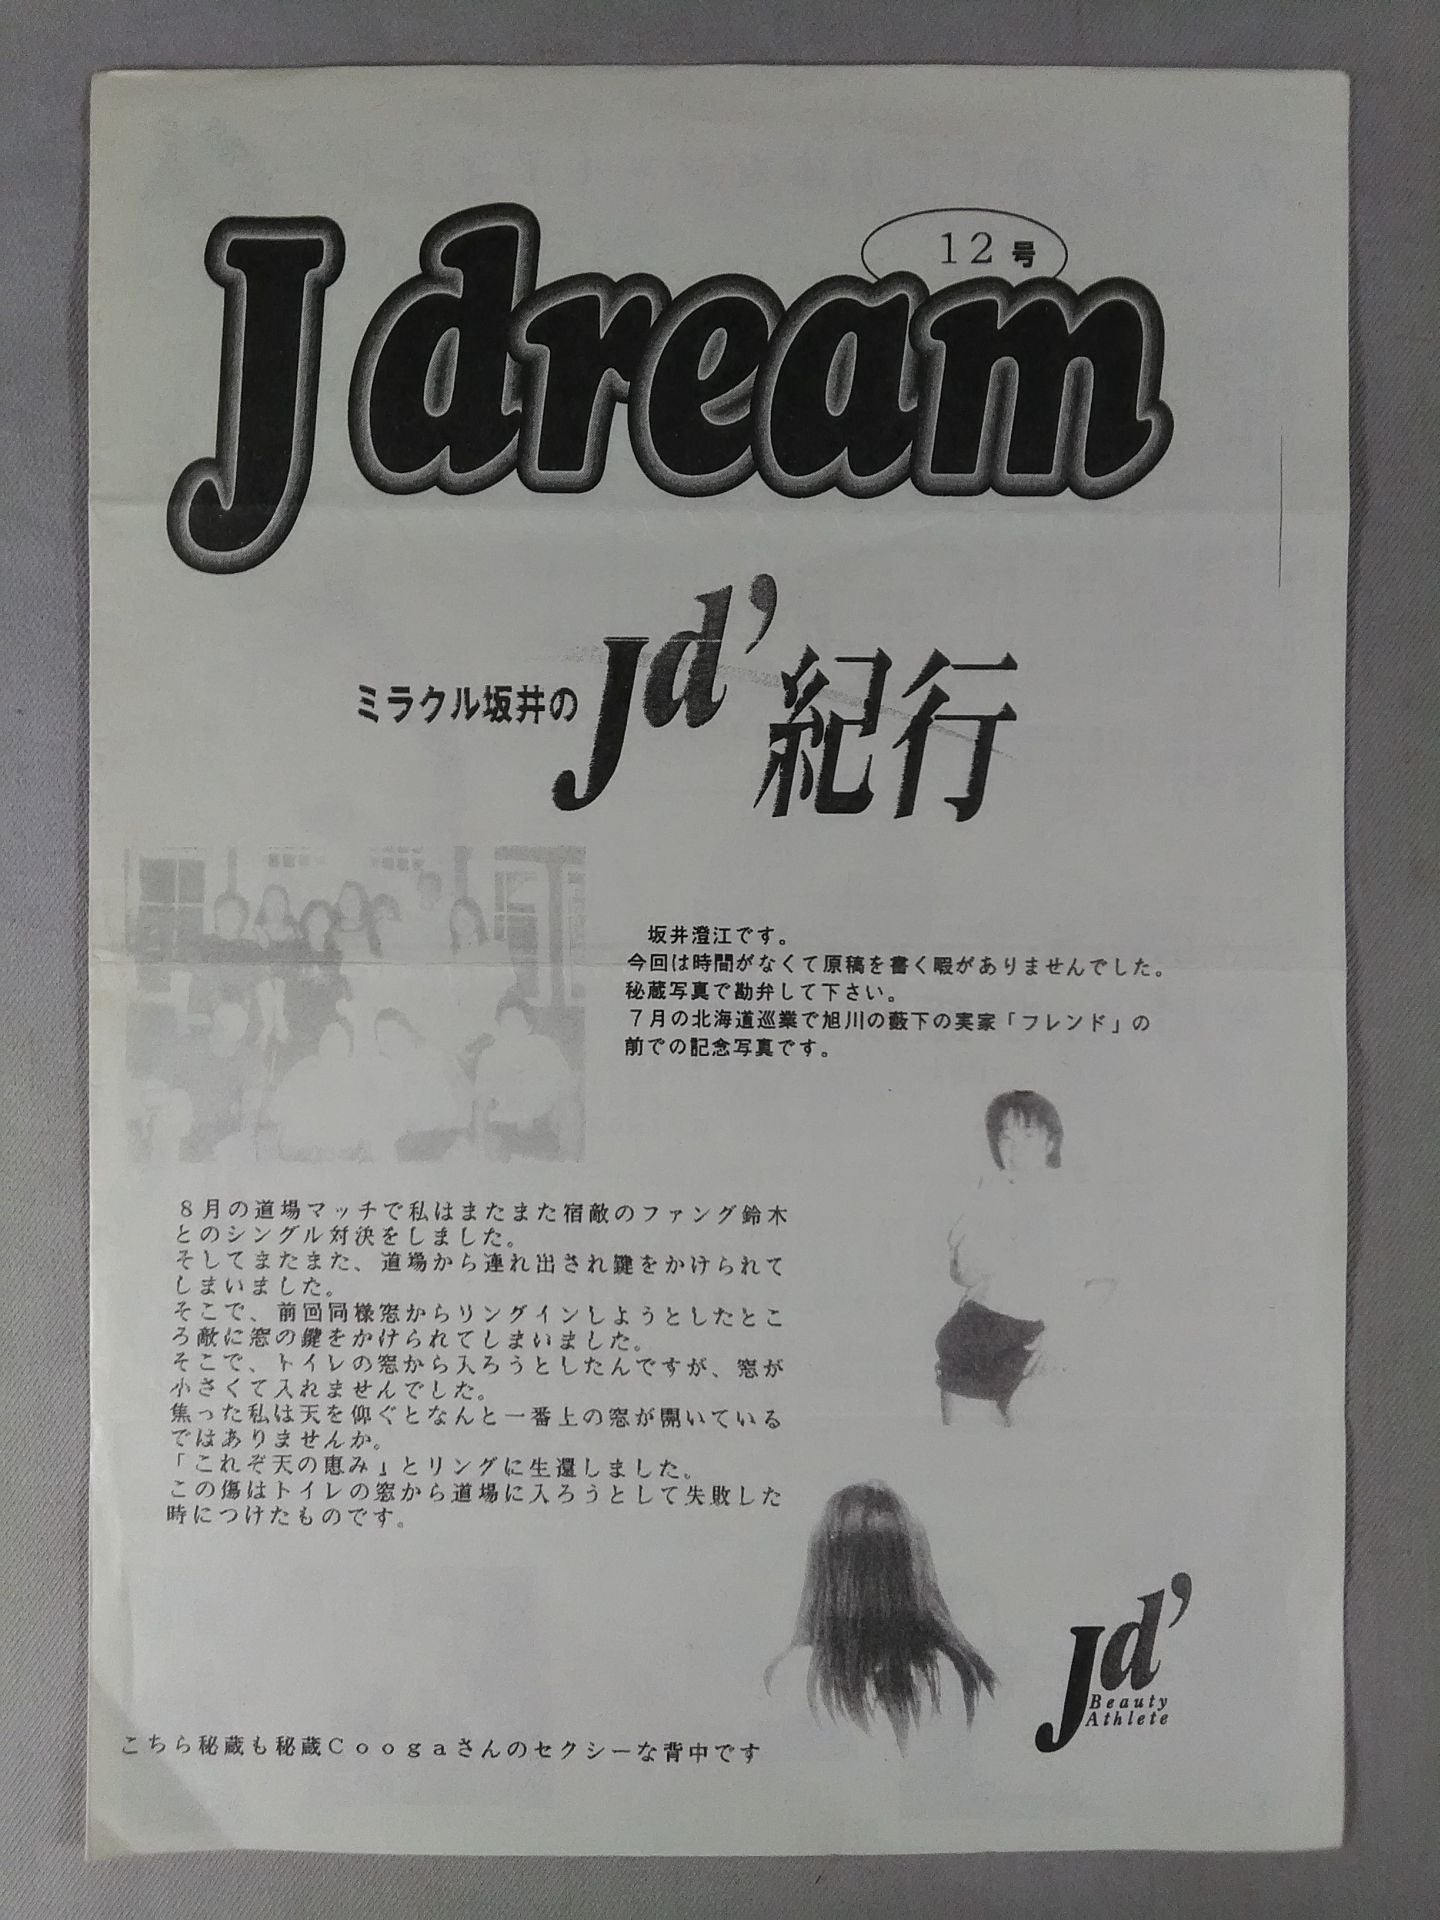 12号
J dream
ミラクル坂井のJd'紀行
坂井澄江です。
今回は時間がなくて原稿を書く暇がありませんでした。
秘蔵写真で勘弁して下さい。
7月の北海道巡業で旭川の薮下の実家「フレンド」の
前での記念写真です。
8月の道場マッチで私はまたまた宿敵のファング鈴木
とのシングル対決をしました。
そしてまたまた、道場から連れ出され鍵をかけられて
しまいました。
そこで、前回同様窓からリングインしようとしたとこ
ろ敵に窓の鍵をかけられてしまいました。
そこで、トイレの窓から入ろうとしたんですが、窓が
小さくて入れませんでした。
焦った私は天を仰ぐとなんと一番上の窓が開いている
ではありませんか。
「これぞ天の恵み」とリングに生還しました。
この傷はトイレの窓から道場に入ろうとして失敗した
時につけたものです。
Jd'
Beauty
Athlete
こちら秘蔵も秘蔵Coogaさんのセクシーな背中です